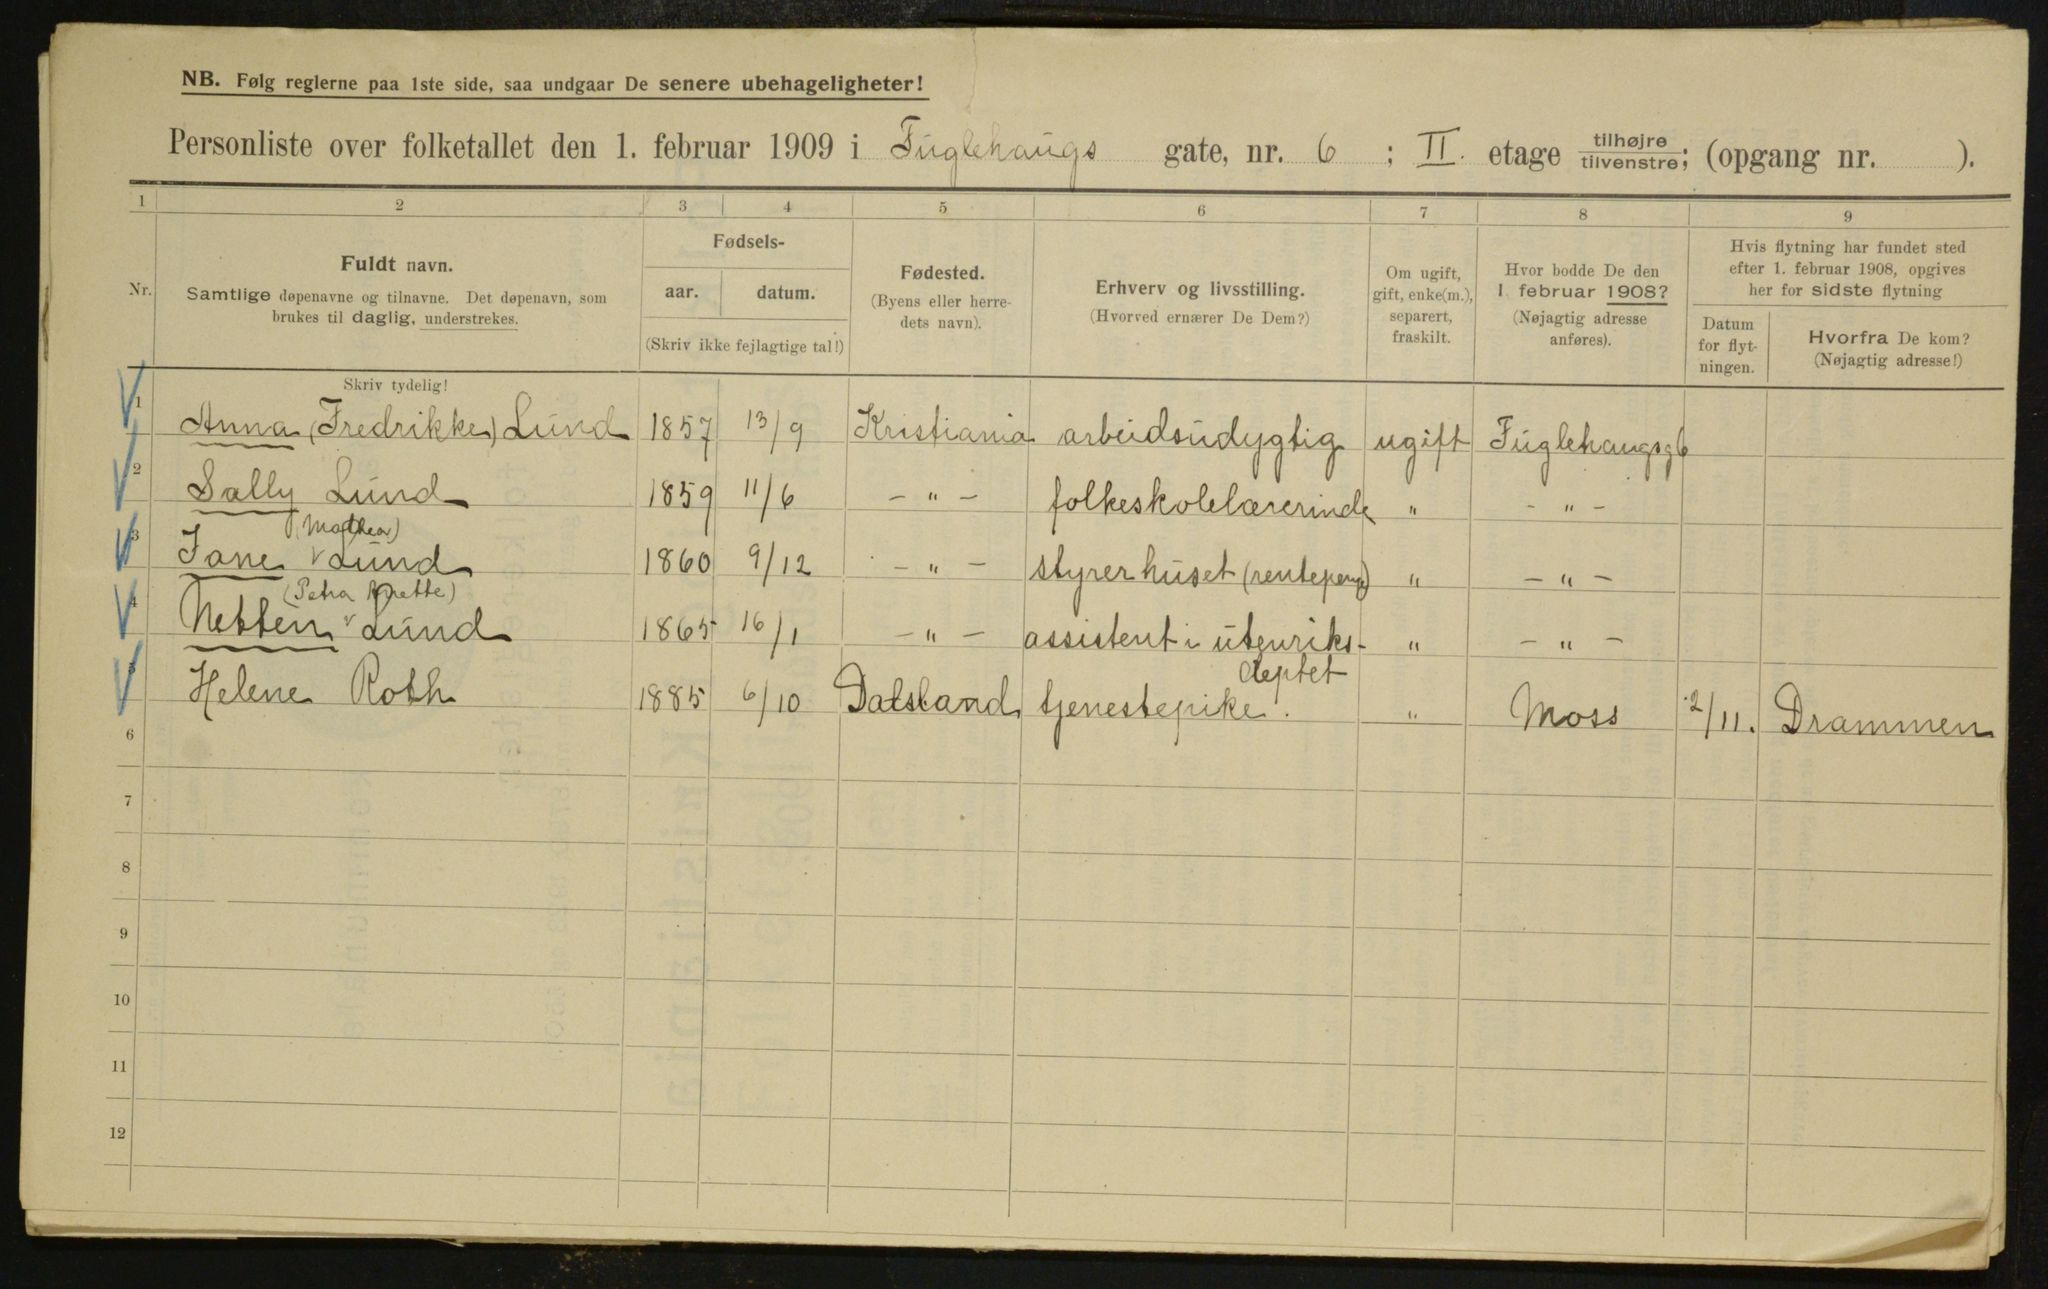 NB. Følg reglerne paa 1ste side, saa undgaar De senere ubehageligheter!
Personliste over folketallet den 1. februar 1909 i Fuglehaugs gate, nr. 6 ; II. etage tilhøjre/tilvenstre; (opgang nr. ).
1 2 3 4 5 6 7 8 9
Nr.
Fuldt navn.
Samtlige døpenavne og tilnavne. Det døpenavn, som
brukes til daglig, understrekes.
Fødsels-
aar. datum.
(Skriv ikke fejlagtige tal!)
Fødested.
(Byens eller herre-
dets navn).
Erhverv og livsstilling.
(Hvorved ernærer De Dem?)
Om ugift,
gift, enke(m.),
separert,
fraskilt.
Hvor bodde De den
1. februar 1908?
(Nøjagtig adresse
anføres).
Hvis flytning har fundet sted
efter 1. februar 1908, opgives
her for sidste flytning
Datum
for flyt-
ningen.
Hvorfra De kom?
(Nøjagtig adresse!)
Skriv tydelig!
1 Anna (Fredrikke) Lund 1857 13/9 Kristiania arbeidsudygtig ugift Fuglehaugsg6
2 Sally Lund 1859 11/6 – " – folkeskolelærerinde " – " –
(Mathea)
3 Jane Lund 1860 9/12 – " – styrer huset (rentepeng) " – " –
(Petra Anette)
4 Netten Lund 1865 16/1 – " – assistent i utenriks- " – " –
deptet
5 Helene Roth 1885 6/10 Dalsland tjenestepike. " Moss 2/11. Drammen
6
7
8
9
10
11
12